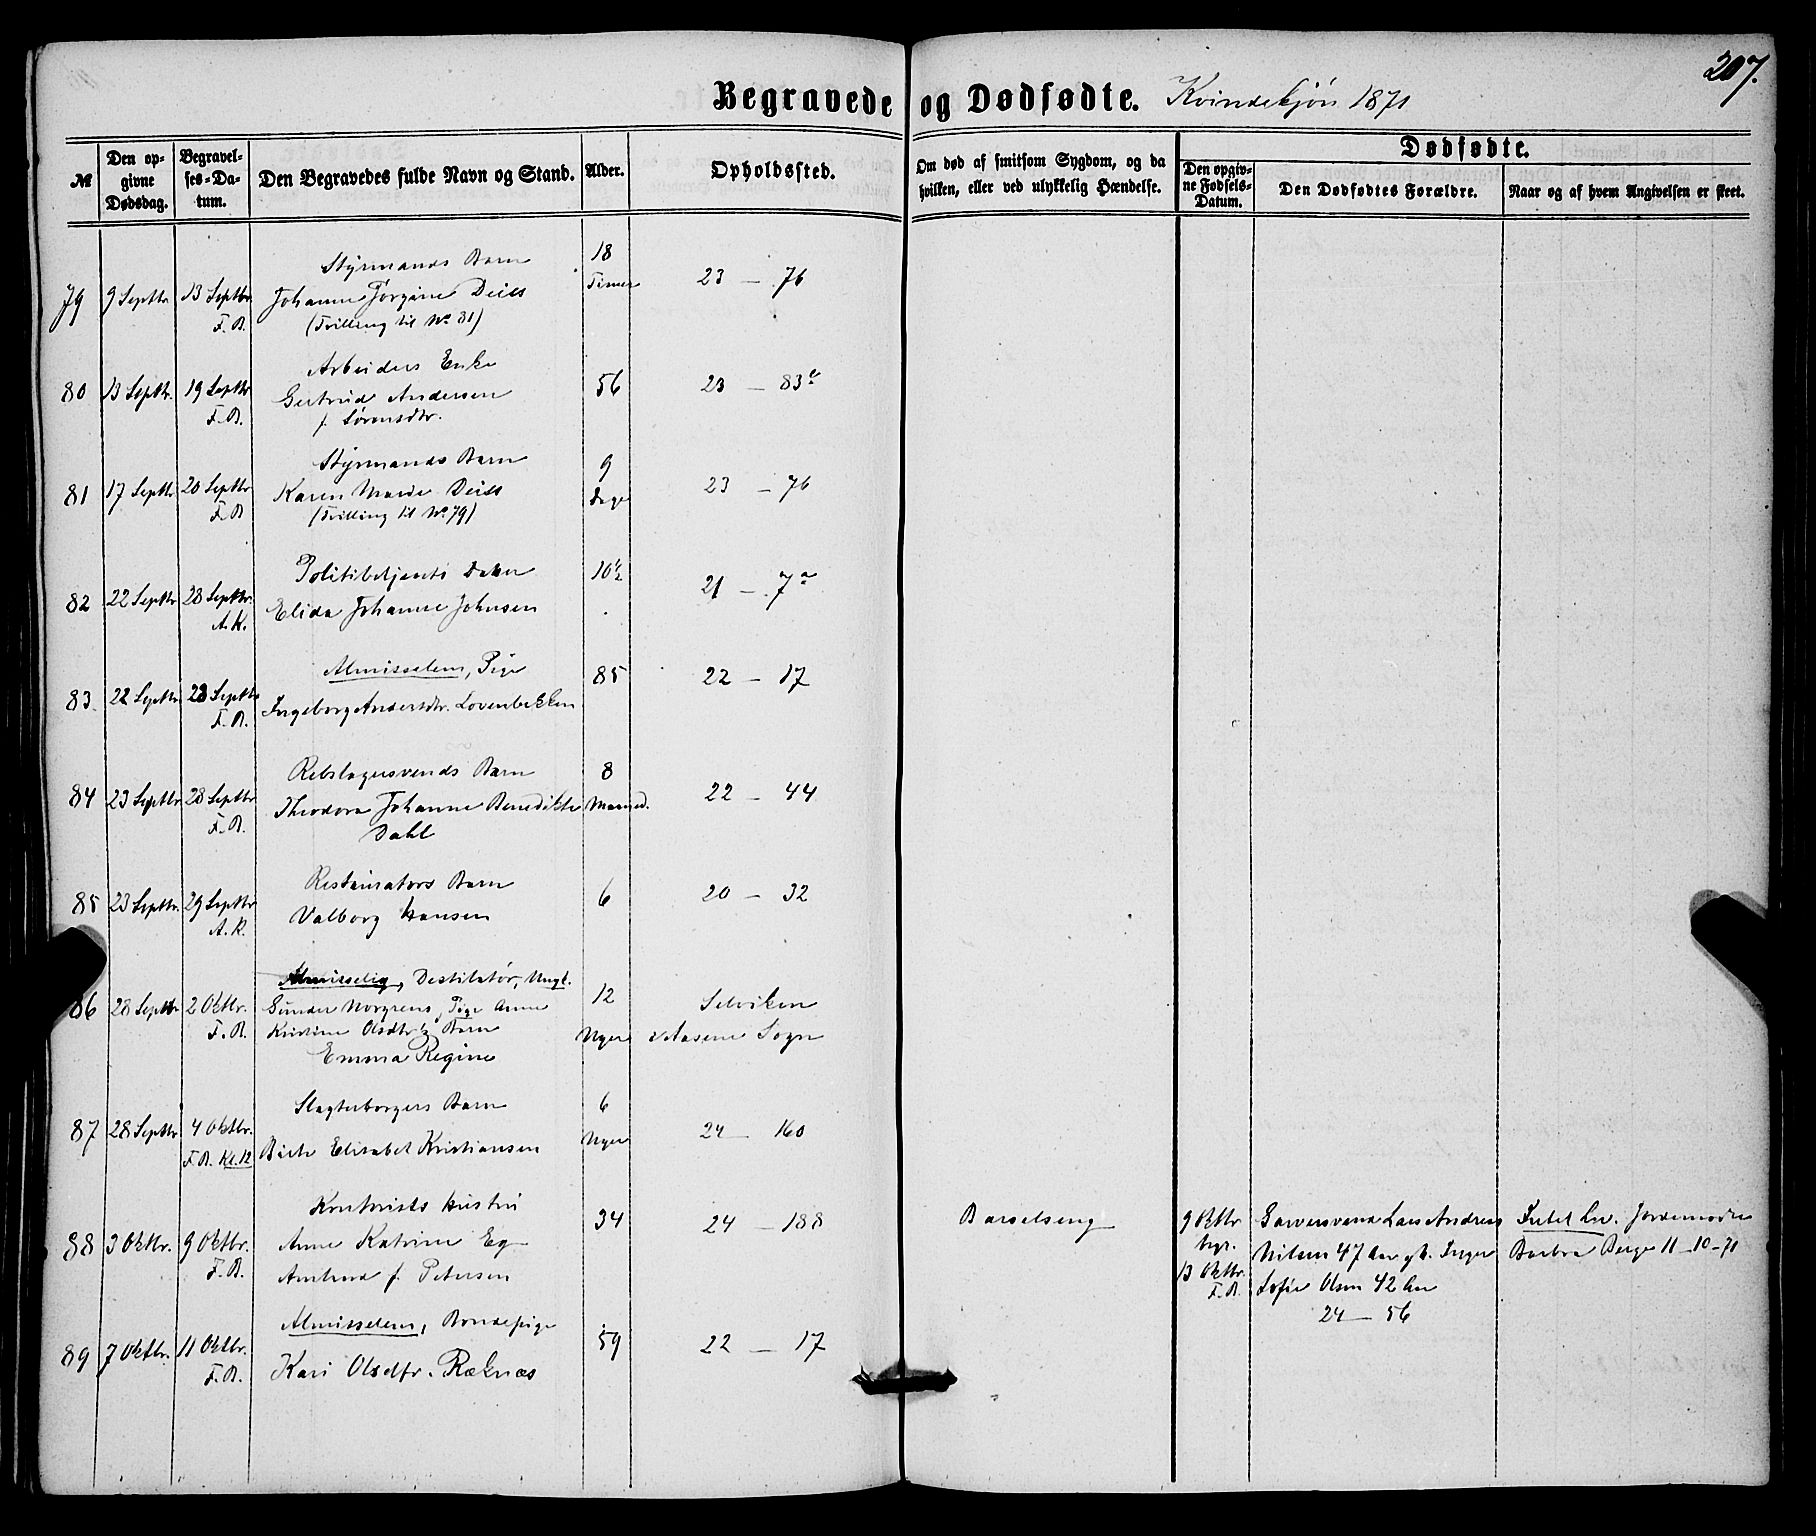 207.
Begravede og Dødfødte. Kvindekjøn 1871
№
Den opgivne Dødsdag.
Begravelses-Datum.
Den Begravedes fulde Navn og Stand.
Alder.
Opholdssted.
Om død af smitsom Sygdom, og da hvilken, eller ved ulykkelig Hændelse.
Dødfødte.
Den opgivne Fødsels-Datum.
Den Dødfødtes Forældre.
Naar og af hvem Angivelsen er skeet.
79 9 Septbr. 13 Septbr. F. B. Styrmands Barn 18 Timer 23 — 76
Johanne Jørgine Deiss
(Tvilling til No. 81)
80 13 Septbr. 19 Septbr. F. B. Arbeiders Enke 56 23 — 83
Gertrud Andersen
f. Sørensdtr.
81 17 Septbr. 20 Septbr. F. B. Styrmands Barn 9 Dage 23 — 76
Karen Marie Deiss
(Tvilling til No. 79)
82 22 Septbr. 28 Septbr. A. K. Politibetjents Datter 10½ 21 — 7a
Elida Johanne Johnsen
83. 22 Septbr. 28 Septbr. F. B. Almisselem, Pige 85 22 — 17
Ingeborg Andersdtr. Lovenbekken
84 23 Septbr. 28 Septbr. F. B. Rebslagersvends Barn 8 Maaned. 22 — 44
Theodora Johanne Benedikte
Dahl
85 23 Septbr. 29 Septbr. A. K. Restauratørs Barn 6 20 — 32
Valborg Hansen
86 28 Septbr 2 Oktbr. F. B. Almisselig, Destilatør, Ungk. 12 Uger Selviken
Gunder Norgrens, Pige Anne v Aasene Sogn
Kristine Olsdtr's Barn
Emma Regine
87 28 Septbr 4 Oktbr. F. B. Kl. 12 Slagterborgers Barn 6 Uger 24 — 160
Birte Elisabet Kristiansen
88 3 Oktbr. 9 Oktbr. F. B. Kontorists Hustru 34 24 — 188 Barselseng
Anne Katrine Eg
f. Petersen
9 Oktbr. begr. 13 Oktbr. F. B.
Garversvend Lars Andreas
Nilsen 47 Aar gl. Inger
Sofie Olsen 42 Aar
24 — 56
Jordemoder
Barbra Berge 11–10–71
89 7 Oktbr. 11 Oktbr. F. B. Almisselem, Bondepige 59 22 — 17
Kari Olsdtr. Røknæs